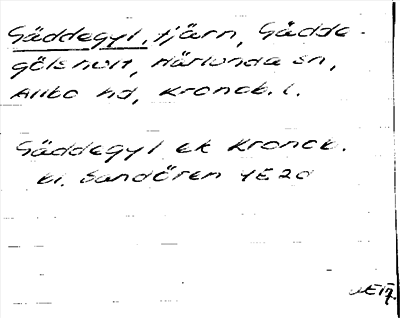 Gäddegyl, tjärn, Gädde-
gölshult, Härlunda sn,
Allbo hd, Kronob. l.
Gäddegyl ek Kronob.
bl. Sandören 4E2d